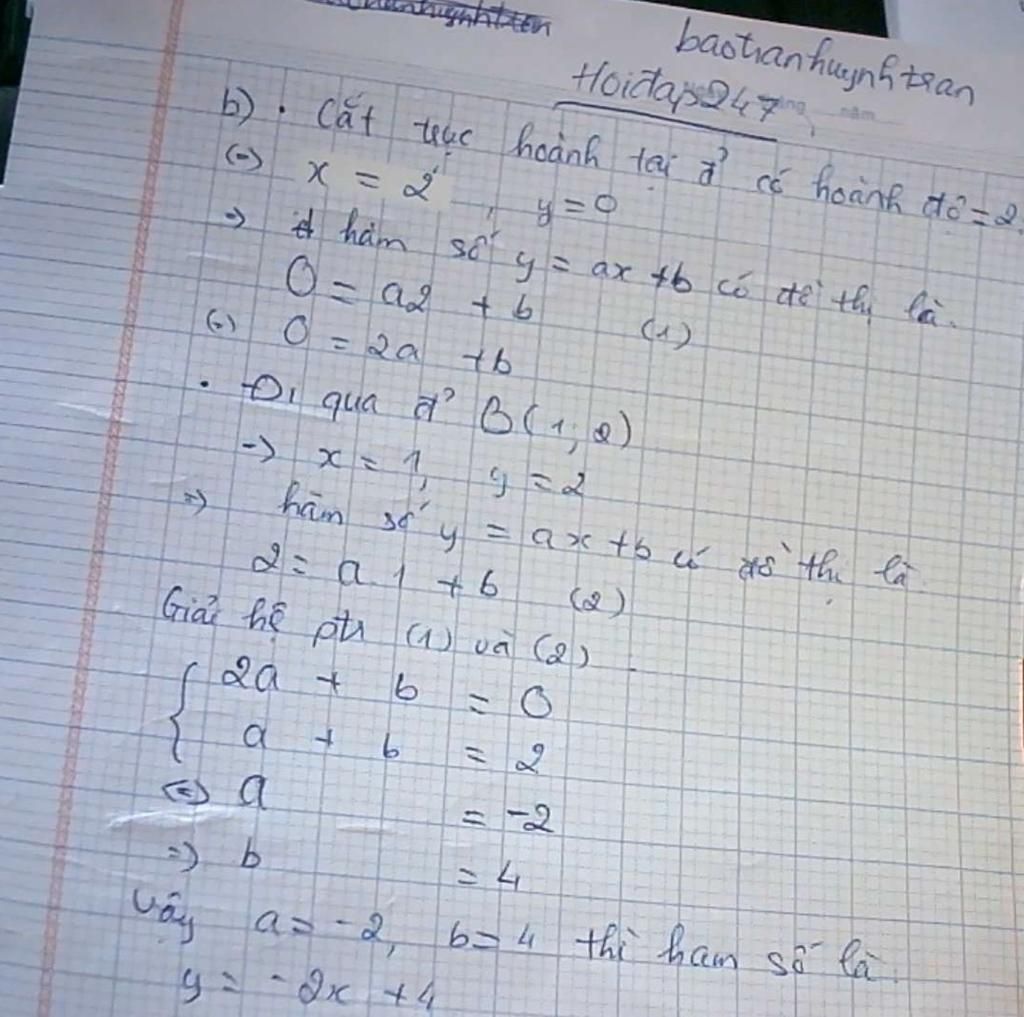 baotranhuynhtran
Hoidap247
b) . Cắt trục hoành tại đ' có hoành độ = 2.
(=) x = 2 , y = 0
=> hàm số y = ax + b có đồ thị là.
0 = a2 + b
(=) 0 = 2a + b (1)
. Đi qua đ' B(1; 2)
-> x = 1, y = 2
=> hàm số y = ax + b có đồ thị là
2 = a.1 + b (2)
Giải hệ ptr (1) và (2).
{ 2a + b = 0
a + b = 2
<=> a = -2
=> b = 4
Vậy a = -2, b = 4 thì ham số là.
y = -2x + 4